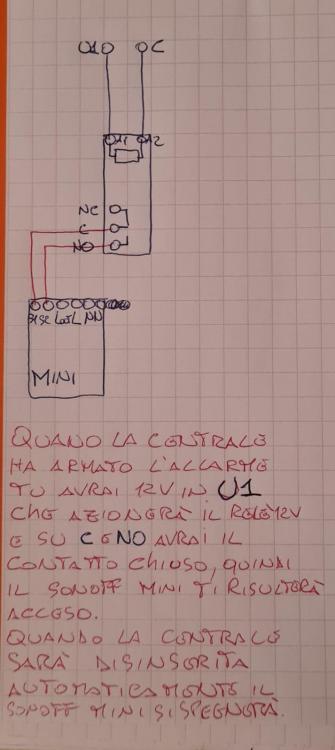 U1 C
A1 A2
NC
C
NO
S1 S2 LOUT L N N
MINI
QUANDO LA CENTRALE
HA ARMATO L'ALLARME
TU AVRAI 12V IN U1
CHE AZIONERÀ IL RELÈ 12V
E SU C E NO AVRAI IL
CONTATTO CHIUSO, QUINDI
IL SONOFF MINI TI RISULTERÀ
ACCESO.
QUANDO LA CENTRALE
SARÀ DISINSERITA
AUTOMATICAMENTE IL
SONOFF MINI SI SPEGNERÀ.